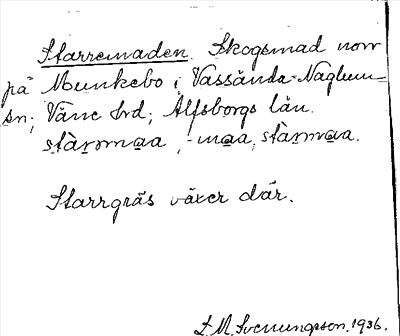 Starremaden. Skogsmad norr
på Munkebo i Vassända-Naglum-
sn; Väne hd; Älfsborgs län.
stàrəmaa, -maa, stàrmaa.
Starrgräs växer där.
L. M. Svenungsson. 1936.